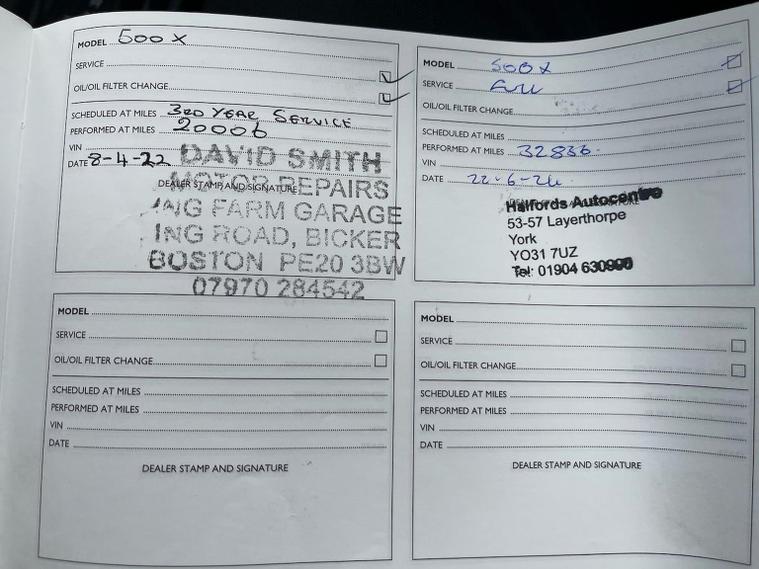 MODEL 500 X
SERVICE
OIL/OIL FILTER CHANGE
SCHEDULED AT MILES 3RD YEAR SERVICE
PERFORMED AT MILES 20006
VIN
DATE 8-4-22
DEALER STAMP AND SIGNATURE
DAVID SMITH
MOTOR REPAIRS
ING FARM GARAGE
ING ROAD, BICKER
BOSTON PE20 3BW
07970 284542
MODEL 500 X
SERVICE Full
OIL/OIL FILTER CHANGE
SCHEDULED AT MILES
PERFORMED AT MILES 32836
VIN
DATE 22-6-24
Halfords Autocentre
53-57 Layerthorpe
York
YO31 7UZ
Tel: 01904
MODEL
SERVICE
OIL/OIL FILTER CHANGE
SCHEDULED AT MILES
PERFORMED AT MILES
VIN
DATE
DEALER STAMP AND SIGNATURE
MODEL
SERVICE
OIL/OIL FILTER CHANGE
SCHEDULED AT MILES
PERFORMED AT MILES
VIN
DATE
DEALER STAMP AND SIGNATURE